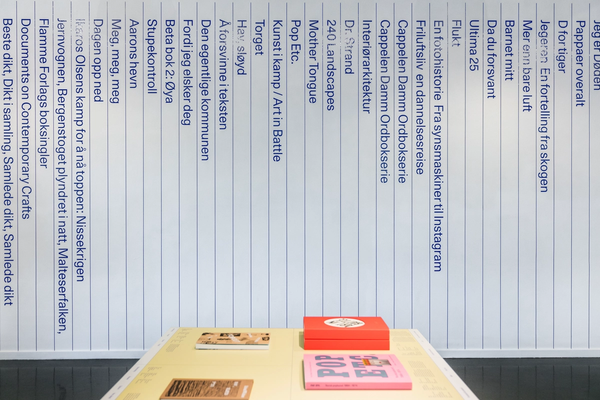 Jeg er Døden
Pappaer overalt
D for tiger
Jegeren. En fortelling fra skogen
Mer enn bare luft
Barnet mitt
Da du forsvant
Ultima 25
Flukt
En fotohistorie. Fra synsmaskiner til Instagram
Friluftsliv: en dannelsesreise
Cappelen Damm Ordbokserie
Cappelen Damm Ordbokserie
Interiørarkitektur
Dr.
240 Landscapes
Mother Tongue
Pop Etc.
Kunst i kamp / Art in Battle
Torget
sløyd
Å forsvinne i teksten
Den egentlige kommunen
Fordi jeg elsker deg
Beta bok 2: Øya
Stupekontroll
Aarons hevn
Meg, meg, meg
Dagen opp ned
Olsens kamp for å nå toppen: Nissekrigen
Jernvognen, Bergenstoget plyndret i natt, Malteserfalken,
Flamme Forlags boksingler
Documents on Contemporary Crafts
Beste dikt, Dikt i samling, Samlede dikt, Samlede dikt
POP
ETC